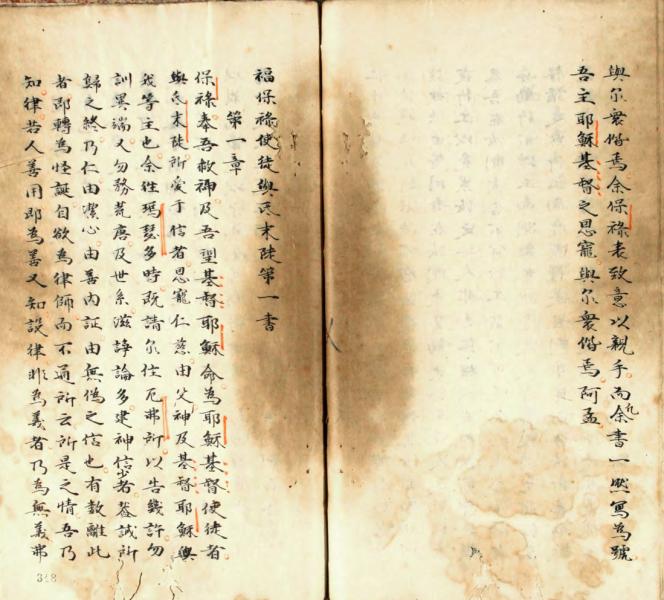 與尔衆偕焉余保祿表致意以親手而余凡書一㸐寫為號
吾主耶穌基督之恩寵與尔衆偕焉阿孟
福保祿使徒與氐末陡第一書
第一章
保祿奉吾救神及吾望基督耶穌命為耶穌基督使徒者
與氐末陡所愛于信者恩寵仁慈由父神及基督耶穌與
我等主也余徃瑪瑟多時既請尔住厄弗所以告幾許勿
訓異端又勿務荒唐及世系滋諍論多建神信少者蓋誡所
歸之終乃仁由潔心由善內証由無偽之信也有數離此
者即轉為怪誕自欲為律師而不通所云所是之情吾乃
知律若人善用即為善又知設律非為義者乃為無義弗
348